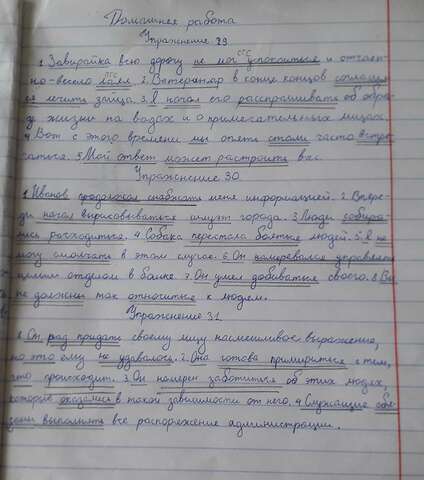 Домашняя работа
Упражнение 29
СГС
1. Завирайка всю дорогу не мог успокоиться и отчаян-
ПГС
но-весело лаял. 2. Ветеринар в конце концов согласил-
ся лечить зайца. 3. Я начал его расспрашивать об обра-
зе жизни на водах и о примечательных лицах.
4. Вот с этого времени мы опять стали часто встре-
чаться. 5. Мой ответ может расстроить вас.
Упражнение 30.
1. Иванов продолжал снабжать меня информацией. 2. Впере-
ди начал вырисовываться силуэт города. 3. Люди собира-
лись расходиться. 4. Собака перестала бояться людей. 5. Я не
могу смолчать в этом случае. 6. Он намеревался управлять
целым отделом в банке. 7. Он умел добиваться своего. 8. Вы
не должны так относиться к людям.
Упражнение 31.
1. Он рад придать своему лицу насмешливое выражение,
но это ему не удавалось. 2. Она готова примириться с тем,
что происходит. 3. Он намерен заботиться об этих людях,
которые оказались в такой зависимости от него. 4. Служащие обя-
заны выполнять все распоряжение администрации.